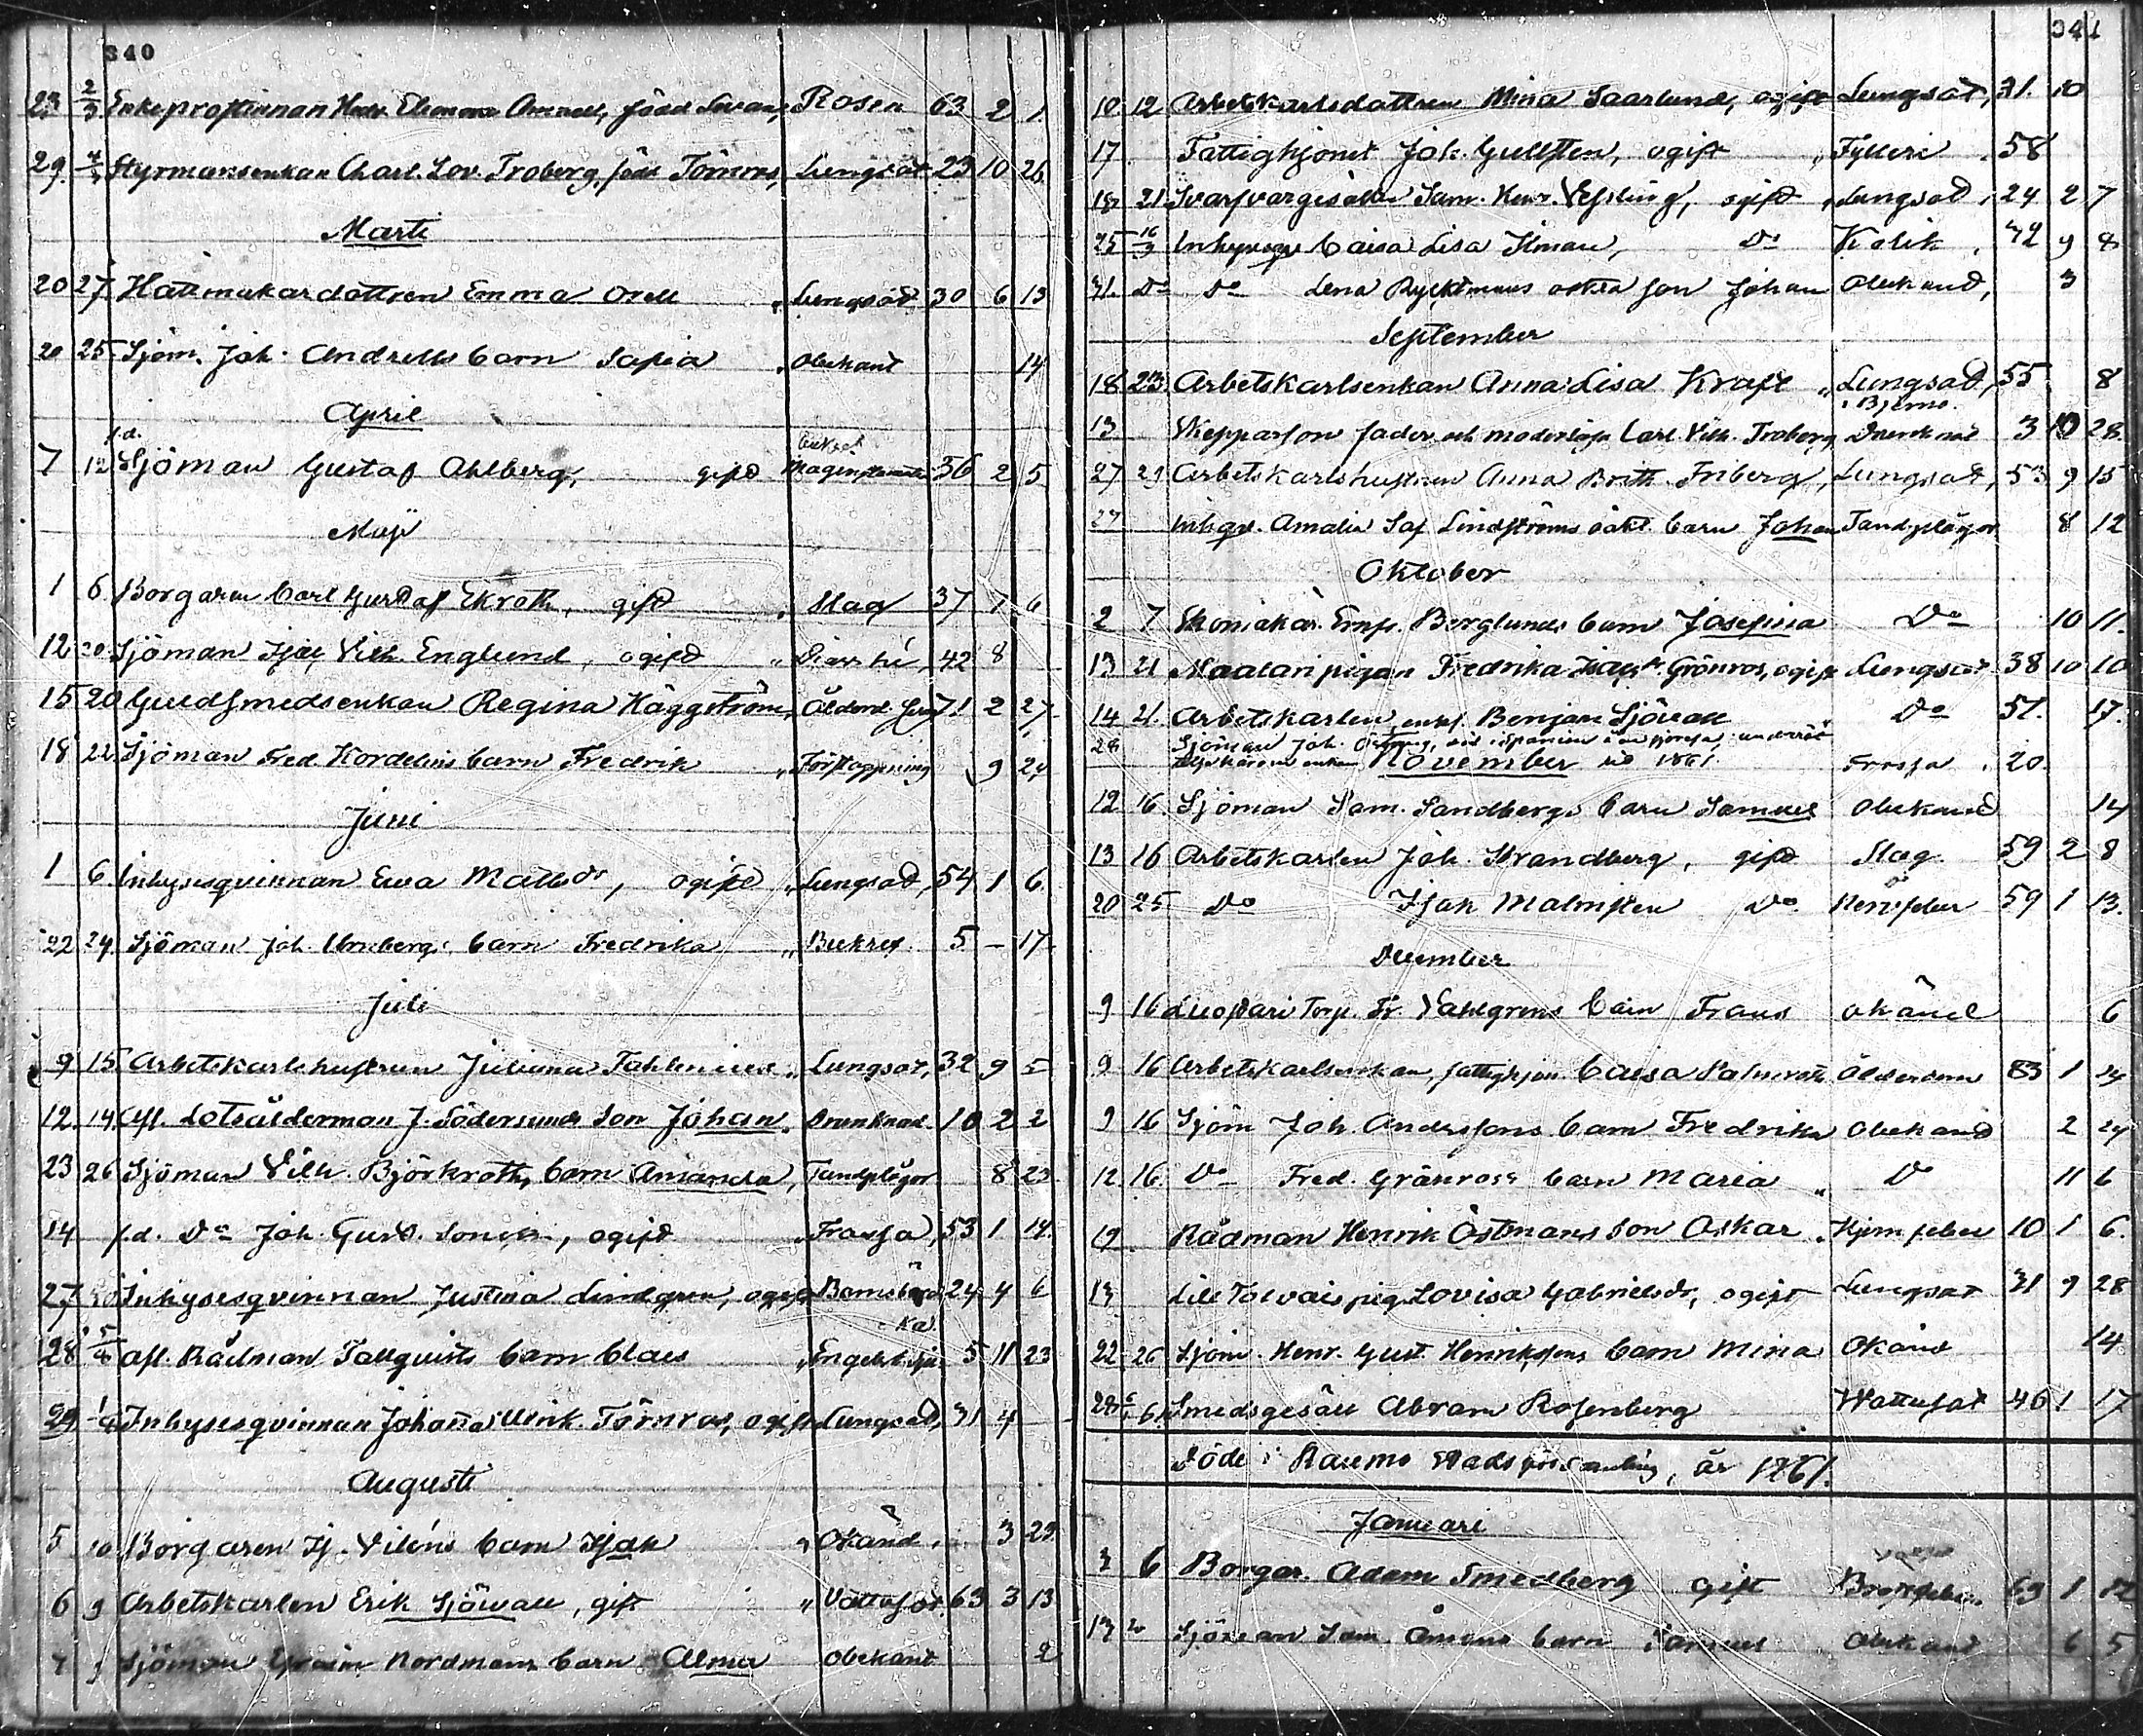 340
23 2/3 Enkeprostinnan Hedv. Eleonora Amnell, född Levan, Rosen 63 2 1
29. 4/3 Styrmansenkan Charl. Lov. Troberg, född Törnros, Lungsot 23 10 26
Marti
20 27 Hattmakardottren Emma Orell " Lungsot 30 6 13
20 25 Sjöm. Joh. Andrells barn Sofia " Obekant 14
April
7 12 f.d. Sjöman Gustaf Ahlberg, gift 56 2 5
Maji
1 6 Borgaren Carl Gustaf Ekroth, gift " Slag 37 1 6
12 20 Sjöman Isac Vilh. Englund, ogift " Diarrhé, 42 8
15 20 Guldsmedsenkan Regina Häggström, Ålderd. 71 2 27
18 22 Sjöman Fred. Kordelins barn Fredrik " Förstoppning 9 24
Juni
1 6 Inhysesqvinnan Eva Mattsdr, ogift " Lungsot, 54 1 6
22 24 Sjöman Joh. barn Fredrika " Bukref 5 – 17
Juli
9 15 Arbetskarlshustrun Juliana " Lungsot, 32 9 5
12. 14 Afl. Lotsålderman J. Söderlunds Son Johan, Drunknad. 10 2 2
23 26 Sjöman Vilh. Björkroths barn Amanda, Tandplågor 8 23
14 f.d. Do Joh. Gust. ogift " Frossa, 53 1 14
27 Inhysesqvinnan Justina Lindgren, ogift Barnsbörd 24 4 6
28 5/8 afl. Rådman Tallqvists barn Claes " Engelska sju. 5 11 23
29 1/8 Inhysesqvinnan Johanna Ulrik. Törnros, ogift Lungsot, 31 4
Augusti
5 10 Borgaren Is. Viléns barn Isak " Okänd, 3 29
6 9 Arbetskarlen Erik Sjövall, gift " Vattusot 63 3 13
7 9 Sjöman Nordmans barn Alma Obekant 2
341
10 12 Arbetskarlsdottren Mina Saarlund, ogift Lungsot, 31. 10
17 Fattighjonet Joh. Gullsten, ogift " Fylleri 58
18 21 Svarfvargesällen Sam. Henr. ogift, Lungsot, 24 2 7
25 16/9 Inhysesq. Caisa Lisa Do Kolik 42 9 8
31. Do Do Lena son Johan Obekand, 3
September
18 23 Arbetskarlsenkan Anna Lisa Kraft " Lungsot, 55 8
i Bjerno.
13 Skepparson fader och moderlösa Carl Vilh. Troberg Drunknat 3 10 28
27 29 Arbetskarlshustrun Anna Brith. Friberg, Lungsot, 53 9 15
27 Inhqv. Amalia Sof. Lindströms oäkt. barn Johan Tandplågor 8 12
Oktober
2 7 Skomakar. Berglunds barn Josefina Do 10 11.
13 21 Maalari pigan Fredrika Grönros, ogift Lungsot 38 10 10
14 21. Arbetskarlen, enkl. Benjam Sjövall Do 51. 17.
28 Sjöman Joh.
November 1861. Frossa 20.
12 16 Sjöman Sam. Sandbergs barn Samuel Obekand 14
13 16 Arbetskarlen Joh. Strandberg, gift Slag 59 2 8
20 25 Do Isak Malmsten Do Nervfeber 59 1 13.
December
9 16 Luostari Torp. Fr. barn Frans okänd 6
9 16 Arbetskarlsenkan, fattighjon. Caisa Ålderdom 83 1 24
9 16 Sjöm Joh. Anderssons barn Fredrika Obekand 2 24
12. 16. Do Fred. Grönroos barn Maria " Do 11 6
19. Rådman Henrik Östmans Son Oskar. 10 1 6.
13 pig. Lovisa Gabrielsdr, ogift Lungsot 31 9 28
22 26 Sjöm. Henr. Gust. Henrikssons barn Mina Okänd 14
28 6/1 61 Smedsgesäll Abram Rosenberg Wattusot 46 1 17
Döde i Raumo Stadsförsamling, år 1861.
Januari
3 6 Borgar. Adam Smedberg gift 63 1 12
13 Sjöman Sam. barn Samuel Obekand 6 5